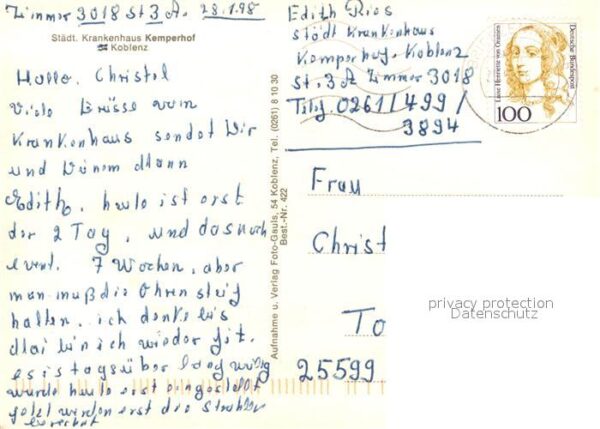 Zimmer 3018 St 3 A. 28.1.98
Städt. Krankenhaus Kemperhof
Koblenz
Hallo, Christel
viele Grüsse vom
Krankenhaus sendet Dir
und Deinem Mann
Edith, heute ist erst
der 2 Tag, und das noch
event. 7 Wochen, aber
man muß die Ohren steif
halten, ich denke bis
Mai bin ich wieder fit.
es ist tagsüber langweilig
wurde heute erst eingestellt
jetzt werden erst die Strahlen
berechnet
Aufnahme u. Verlag Foto-Gauls, 54 Koblenz, Tel. (0261) 8 10 30
Best.-Nr. 422
Edith Ries
städt Krankenhaus
Kemperhof-Koblenz
St. 3 A Zimmer 3018
0261/499/
3894
Luise Henriette von Oranien
Deutsche Bundespost
100
Frau
Christ
To
25599
privacy protection
Datenschutz